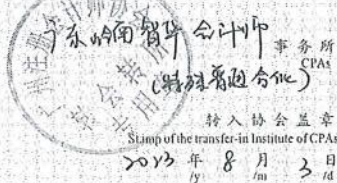 广东岭南智华会计师
事务所
CPAs
(特殊普通合伙)
转入协会盖章
Stamp of the transfer-in Institute of CPAs
2013 年 8 月 3 日
/y /m /d